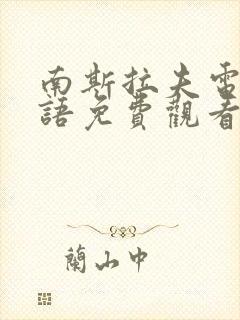 南斯拉夫電
語免費觀看
蘭山中